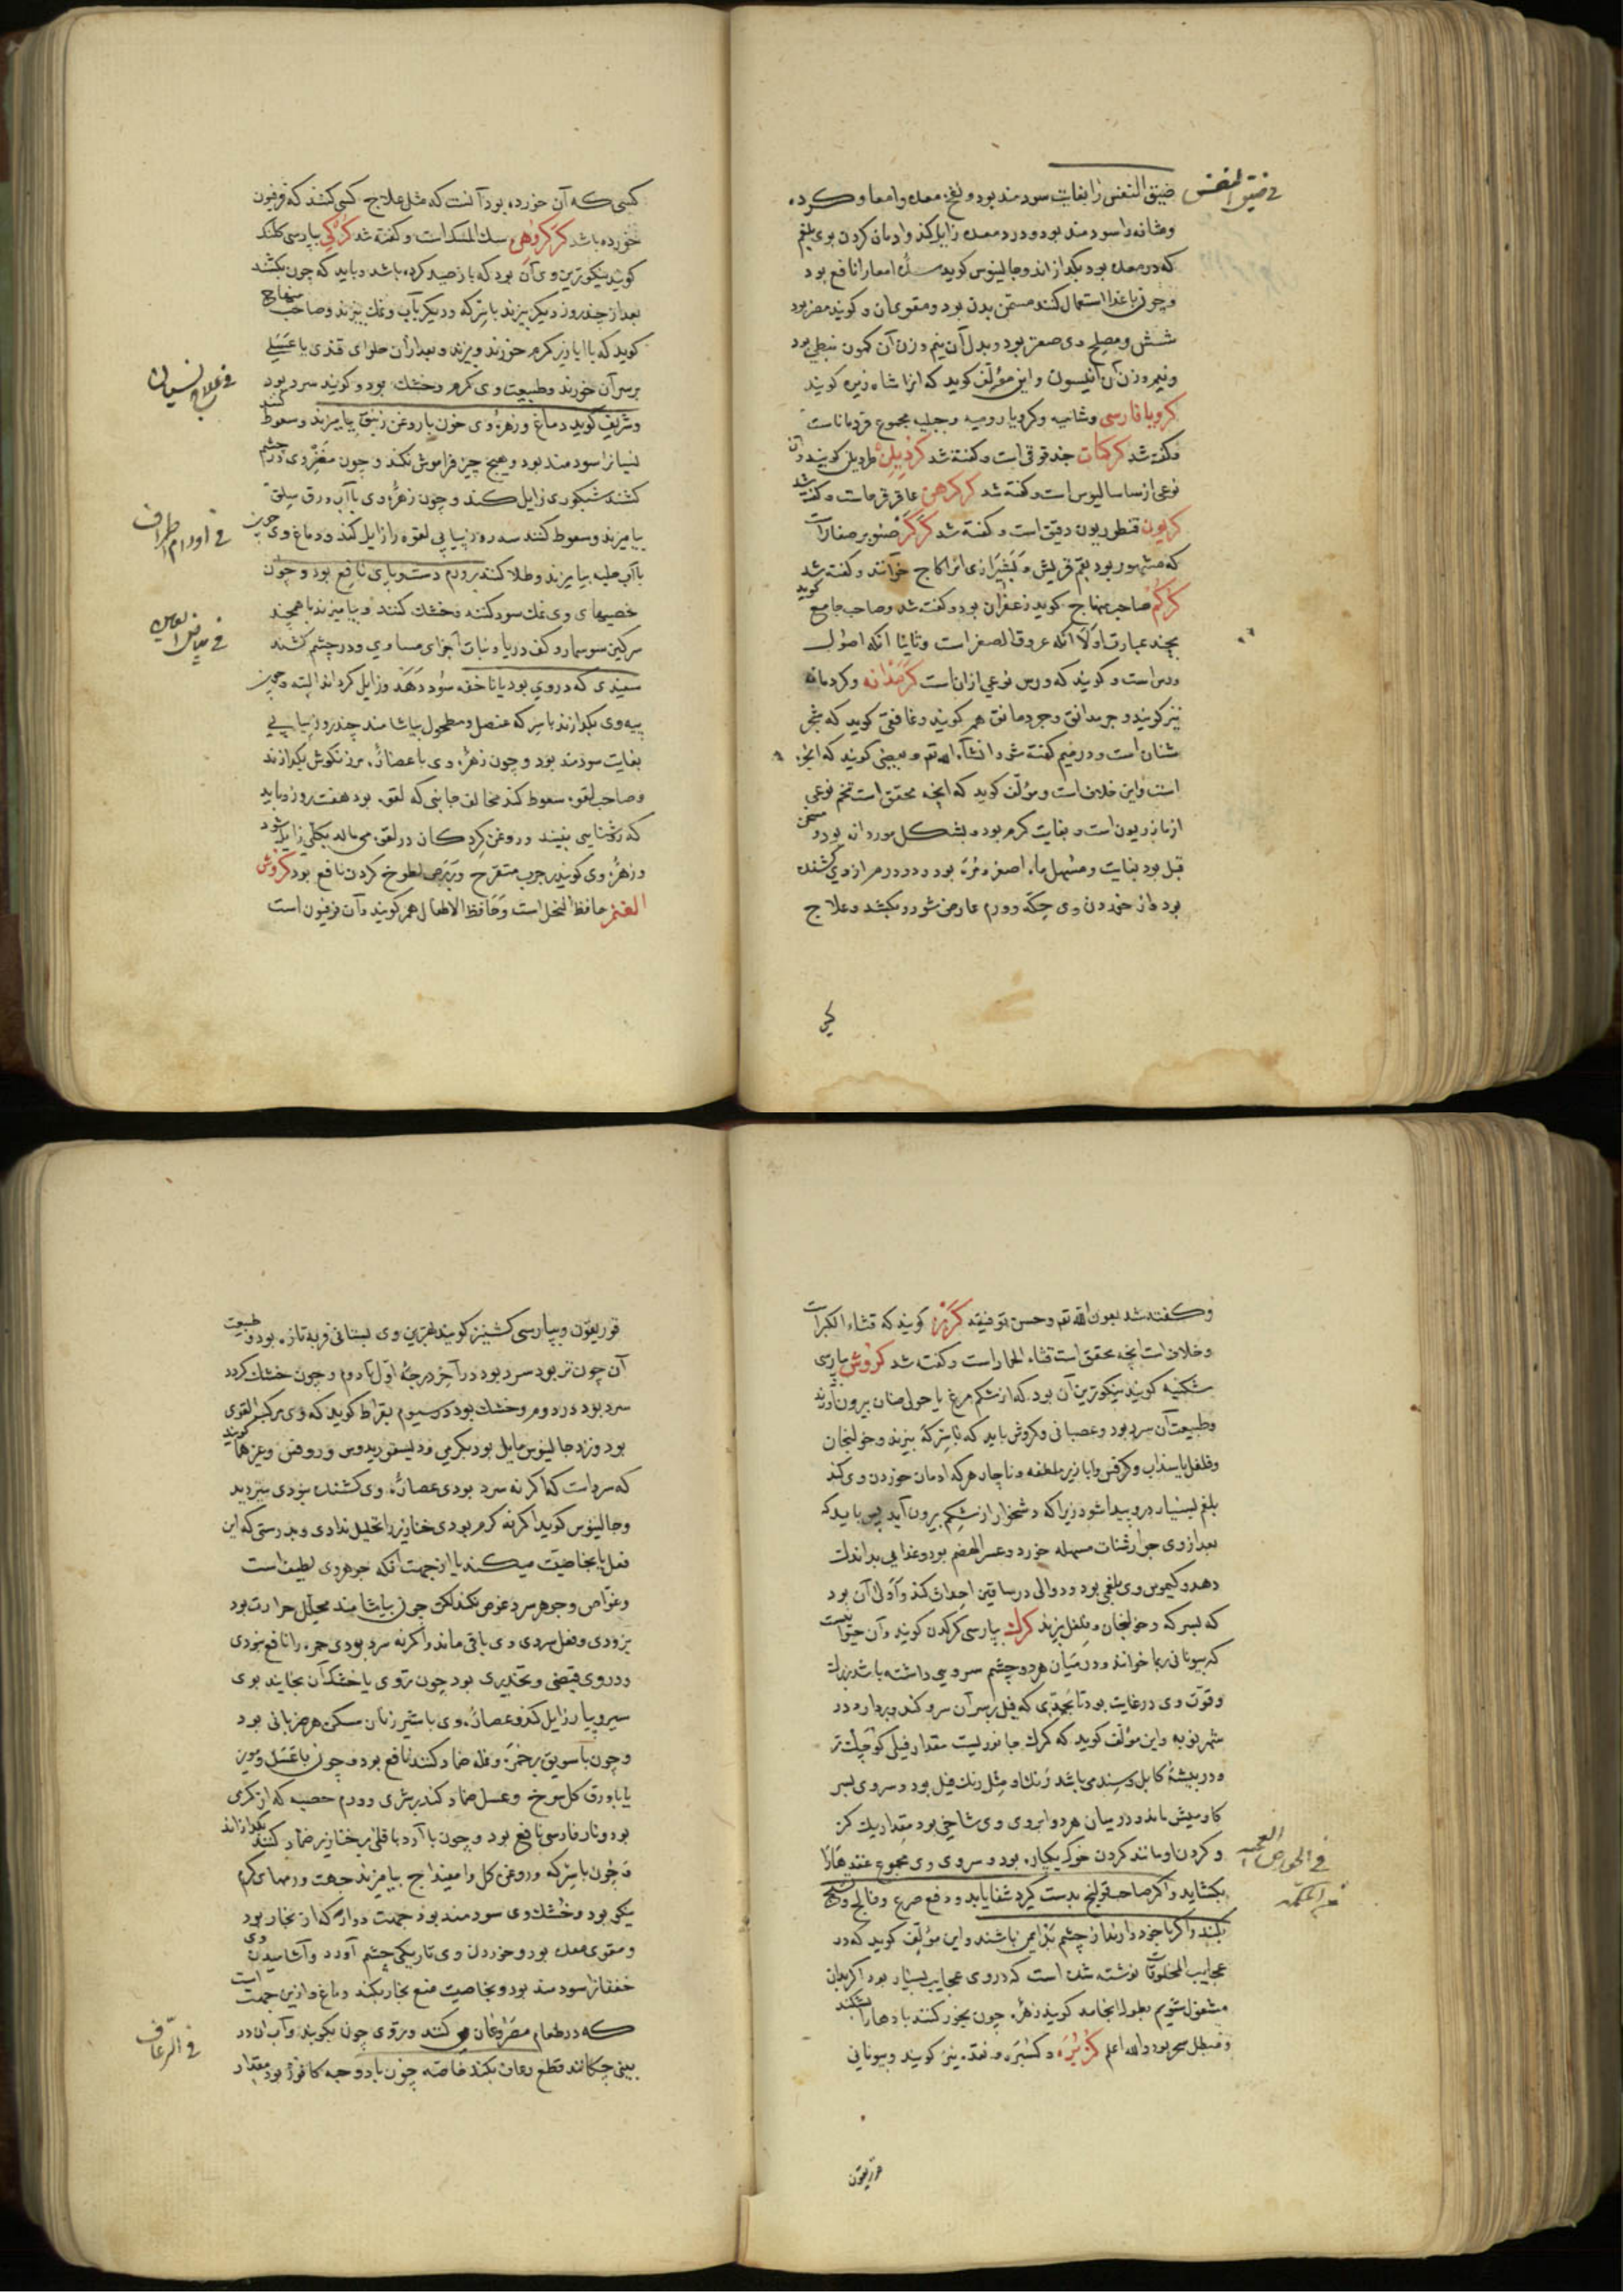 فی ضیق النفس
ضیق النفس را بغایت سودمند بود و نفخ معده و امعا و کرده
و مثانه را سودمند بود و درد معده زایل کند و ادمان کردن بوی بلغم
که در معده بود بکدازاند و جالینوس کوید سده امعا را نافع بود
و چون با غذا استعمال کنند مسخن بدن بود و مقوی آن و کویند مضر بود
شش و مصلح وی صعتر بود و بدل آن نیم وزن آن کمون نبطی بود
و نیم وزن آن انیسون و این مؤلف کوید که انرا شاه زیره کویند
کرویا فارسی و شامیه و کرویا رومیه و جبلیه مجموع قردماناست
و کفته شد کرکمان حندقوقی است و کفته شد کردیلن طردیلن کویند و آن
نوعی از ساسالیوس است و کفته شد کرکرهن عاقرقرحاست و کفته شد
کریون قنطوریون دقیق است و کفته شد کرکر صنوبر صغار است
که مشهور بود بقم قریش و بشیرازی انرا کاج خوانند و کفته شد
کرکم صاحب منهاج کوید زعفران بود و کفته شد و صاحب جامع کوید
بچند عبارت اولا انکه عروق الصفر است و ثانیا انکه اصول
ورس است و کویند که ورس نوعی از ان است کرمدانه و کردمانه
نیز کویند و جرمدانق و جردمانق هم کویند و غافقی کوید که شجر
مثنان است و در میم کفته شود انشآء الله تعم و بعضی کویند که انجره
است و این خلاف است و مؤلف کوید که انچه محقق است تخم نوعی
از مازریون است و بغایت کرم بود و بشکل موردانه بود و مسخن
قبل بود بغایت و مسهل ماء اصفر و مره بود و دو درهم از وی کشنده
بود و از خوردن وی حکه و ورم عارض شود و بکشد و علاج
کسی
کسی که آن خورده بود آنست که مثل علاج کسی کنند که فرفیون
خورده باشد کرکروهن سک المسک است و کفته شد کرکی بپارسی کلنک
کویند نیکوترین وی آن بود که باز صید کرده باشد و باید که چون بکشند
بعد از چند روز دیکر بپزند با سرکه و دیکر بآب و نمک بپزند و صاحب منهاج
کوید که با ابازیر کرم خورند و بپزند و بعد از ان حلوای قندی یا عسلی
فی علاج نسیان
بر سر آن خورند و طبیعت وی کرم و خشک بود و کویند سرد بود
و شریف کوید دماغ و زهره وی چون با روغن زنبق بیامیزند و سعوط کنند
نسیانرا سودمند بود و هیچ چیز فراموش نکند و چون مغز وی در چشم
کشند شبکوری زایل کند و چون زهره وی با آب ورق سلق
فی اورام اطراف
بیامیزند و سعوط کنند سه روز پیاپی لقوه را زایل کند و دماغ وی چون
با آب حلبه بیامیزند و طلا کنند بر ورم دست و پای نافع بود و چون
خصیهای وی نمک سود کنند و خشک کنند و بیامیزند با همچند
فی بیاض العین
سرکین سوسمار و کف دریا و نبات اجزای مساوی و در چشم کشند
سفیدی که در وی بود یا ناخنه سود دهد و زایل کرداند البته و چون
پیه وی بکدازند با سرکه عنصل و مطحول بیاشامند چند روز پیاپی
بغایت سودمند بود و چون زهره وی با عصاره مرزنکوش بکدازند
و صاحب لقوه سعوط کند مخالف جانبی که لقوه بود هفت روز و باید
که روشنایی نبیند و روغن کردکان در لقوه می مالد بکلی زایل شود
و زهره وی کویند بر جرب متقرح و برص لطوخ کردن نافع بود کروش
الغنم حافظ النحل است و حافظ الاطفال هم کویند و آن فرفیون است
و کفته شد بعون الله تعم و حسن توفیقه کرزه کویند که قثاء الکبر است
و خلاف است انچه محقق است قثاء الحمار است و کفته شد کروش بپارسی
شکنبه کویند نیکوترین آن بود که از شکم مرغ یا حولی ضان بیرون آورند
و طبیعت آن سرد بود و عصبانی و کروش باید که با سرکه بپزند و خولنجان
و فلفل یا سذاب و کرفس و ابازیر ملطفه و ناچار هر که ادمان خوردن وی کند
بلغم بسیار درو پیدا شود زیرا که دشخوار از شکم بیرون آید پس باید که
بعد از وی جوارشنات مسهله خورد و عسر الهضم بود و غذایی بد اندک
دهد و کیموس وی بلغمی بود و دوالی در ساقین احداث کند و اولی آن بود
که بسرکه و خولنجان و فلفل پزند کرک بپارسی کرکدن کویند و آن حیوانیست
که بیونانی ریما خوانند و در میان هر دو چشم سرویی داشته باشد بزرک
و قوت وی در غایت بود تا بحدی که فیل بر سر آن سرو کند و بردارد در
شهر نوبه و این مؤلف کوید که کرک جانوریست مقدار فیلی کوچک تر
و در بیشه کابل و سند می باشد رنک او مثل رنک فیل بود و سروی بسر
کاومیش ماند و در میان هر دو ابروی وی شاخی بود مقدار یک کز
فی الخواص العجیبه
و کردن او مانند کردن خوک یکپاره بود و سروی وی مجموع عقدها را
بکشاید و اکر صاحب قولنج بدست کیرد شفا یابد و دفع صرع و فالج و تشنج
بکند و اکر با خود دارند از چشم بد ایمن باشند و این مؤلف کوید که در
عجایب المخلوقات نوشته شده است که در وی عجایب بسیار بود اکر بدان
مشغول شویم بطول انجامد کویند زهره چون بخور کنند بادها را بشکند
و مبطل سحر بود والله اعلم کزبره و کسبره و نقده نیز کویند و بیونانی
قوریعون
قوریعون و بپارسی کشنیز کویند بهترین وی بستانی فربه تازه بود و طبیعت
آن چون تر بود سرد بود در آخر درجه اول تا دوم و چون خشک کردد
سرد بود در دوم و خشک بود در سیوم بقراط کوید که وی مرکب القوی
بود و نزد جالینوس مایل بود بکرمی و دیسقوریدوس و روفس و غیرهما کویند
که سرد است که اکر نه سرد بودی عصاره وی کشنده نبودی بتبرید
و جالینوس کوید اکر نه کرم بودی خنازیر را تحلیل ندادی و بدرستی که این
فعل یا بخاصیت میکند یا از جهت آنکه جوهر وی لطیف است
و غواص و جوهر سرد غوص نکند لکن چون بیاشامند محلل حرارت بود
بزودی و فعل سردی وی باقی ماند و اکر نه سرد بودی حمره را نافع نبودی
و در وی قبضی و تخدیری بود چون تروی یا خشک آن بخایند بوی
سیر و پیاز زایل کند و عصاره وی با شیر زنان مسکن هر ضربانی بود
و چون با سویق بر حمره و نمله ضماد کنند نافع بود و چون با عسل و مویز
یا با ورق کل سرخ و عسل ضماد کنند بر شری و ورم خصیه که از کرمی
بود و نار فارسی نافع بود و چون با آرد باقلی بر خنازیر ضماد کنند بکدازاند
و چون با سرکه و روغن کل و اسفیداج بیامیزند جهت ورمهای کرم
نیکو بود و خشک وی سودمند بود جهت دوار که از بخار بود
و مقوی معده بود و خوردن وی تاریکی چشم آورد و آشامیدن وی
خفقانرا سودمند بود و بخاصیت منع بخار بکند از دماغ و از این جهت است
فی الرعاف
که در طعام مصروعان می کنند و تروی چون بکوبند و آب آن در
بینی چکانند قطع رعاف بکند خاصه چون با دو حبه کافور بود مقدار